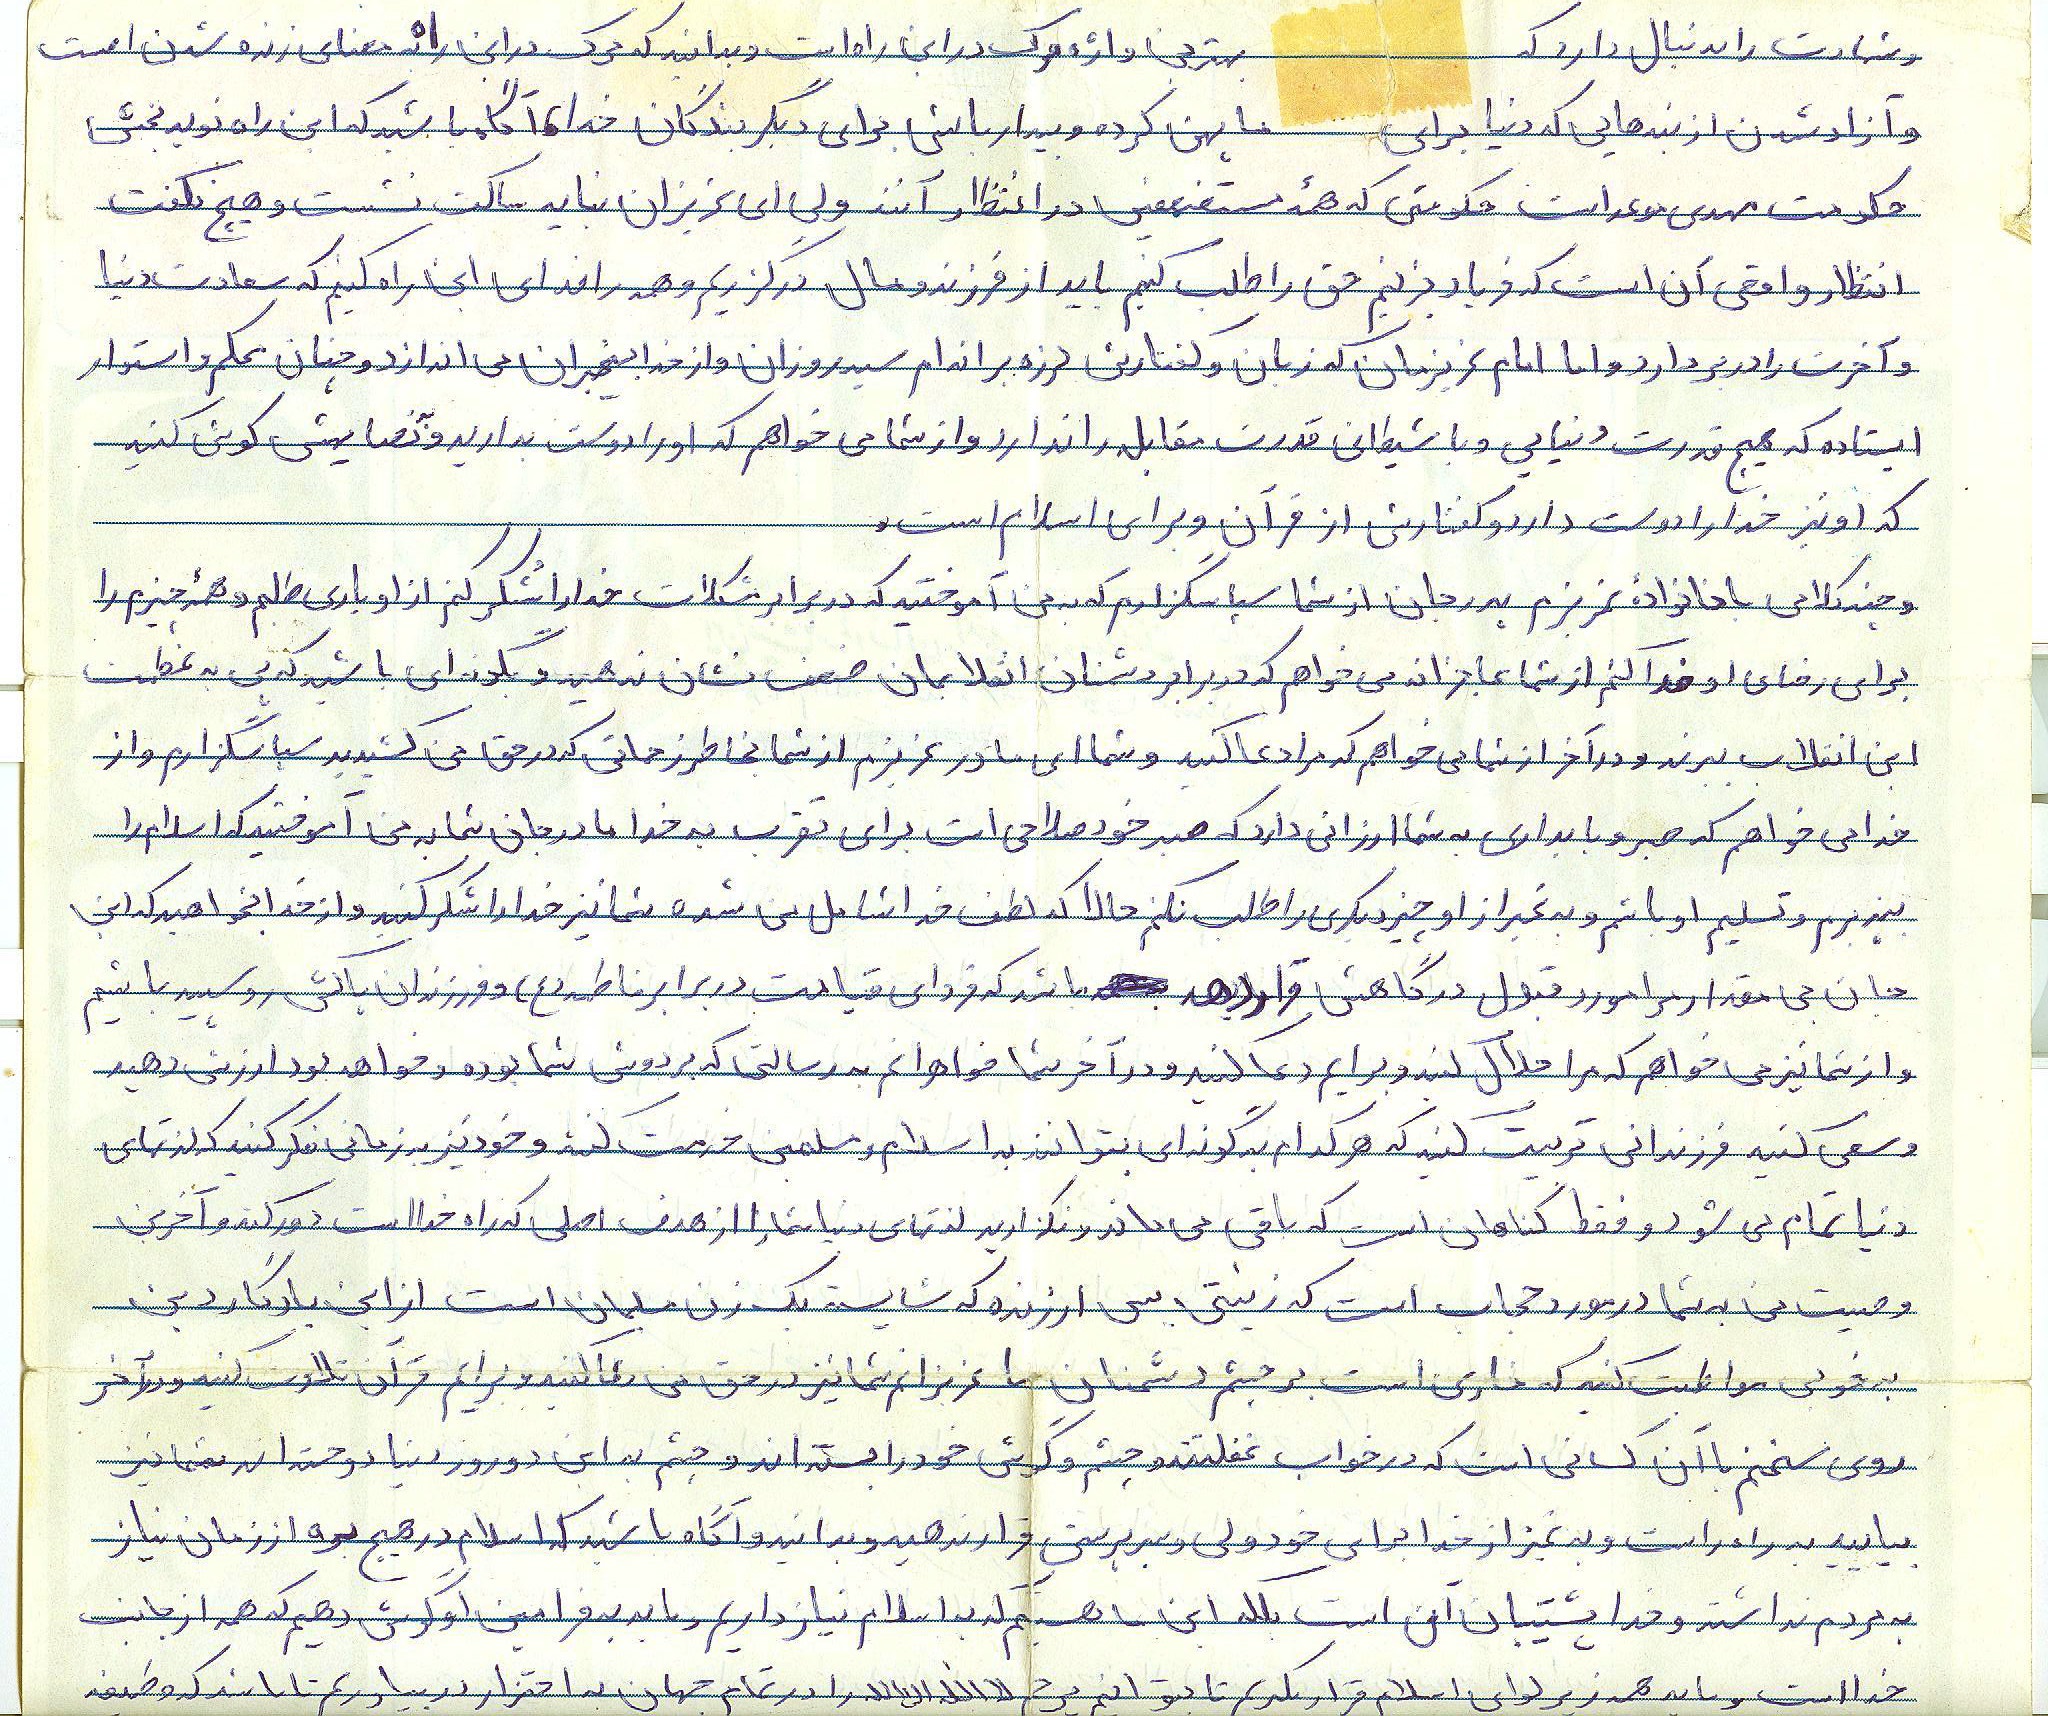 و شهادت را به دنبال دارد که بهترین واژه مرگ در این راه است و بدانید که مرگ در این راه به معنای زنده شدن است
و آزاد شدن از بندهایی که دنیا برای ما پهن کرده و بیدار باشی برای دیگر بندگان خدا آگاه باشید که این راه نوید بخش
حکومت مهدی موعد است حکومتی که همهٔ مستضعفین در انتظار آنند ولی ای عزیزان نباید ساکت نشست و هیچ نگفت
انتظار واقعی آن است که فریاد بزنیم حق را طلب کنیم باید از فرزند و مال درگزریم و همه را فدای این راه کنیم که سعادت دنیا
و آخرت را در بر دارد و اما امام عزیزمان که زبان و گفتارش لرزه بر اندام سیه روزان و از خدا بیخبران می اندازد و چنان محکم و استوار
ایستاده که هیچ قدرت دنیایی و یا شیطانی قدرت مقابله را ندارد و از شما می خواهم که او را دوست بدارید و به نصایهش گوش کنید
که او نیز خدا را دوست دارد و گفتارش از قرآن و برای اسلام است.
و چند کلامی با خانوادهٔ عزیزم پدر جان از شما سپاسگزارم که به من آموختید که در برابر مشکلات خدا را شکر کنم از او یاری طلبم و همه چیزم را
برای رضای او فدا کنم از شما عاجزانه می خواهم که در برابر دشمنان انقلابمان ضعف نشان ندهید و بگونه ای باشید که پی به عظمت
این انقلاب ببرند و در آخر از شما می خواهم که مرا دعا کنید و شما ای مادر عزیزم از شما بخاطر زحماتی که در حق من کشیدید سپاسگزارم و از
خدا می خواهم که صبر و پایداری به شما ارزانی دارد که صبر خود صلاحی است برای تقرب به خدا مادر جان شما به من آموختید که اسلام را
بپذیرم و تسلیم او باشم و به غیر از او چیز دیگری را طلب نکنم حالا که لطف خدا شامل من شده شما نیز خدا را شکر کنید و از خدا بخواهید که این
جان بی مقدار مرا مورد قبول درگاهش قرار دهد باشد که فردای قیامت در برابر فاطمه (ع) و فرزندان پاکش رو سپید باشیم
و از شما نیز می خواهم که مرا حلال کنید و برایم دعا کنید و در آخر شما خواهرانم به رسالتی که بر دوش شما بوده و خواهد بود ارزش دهید
و سعی کنید فرزندانی تربیت کنید که هر کدام به گونه ای بتوانند به اسلام و مسلمین خدمت کنند و خود نیز به زمانی فکر کنید که لذتهای
دنیا تمام می شود و فقط گناهان است که باقی می ماند و نگزارید لذتهای دنیا شما را از هدف اصلی که راه خدا است دور کند و آخرین
وصیت من به شما در مورد حجاب است که زینتی بس ارزنده که شایسته یک زن مسلمان است از این یادگار دین
به خوبی مواظبت کنید که خاری است بر چشم دشمنان ما عزیزانم شما نیز در حق من دعا کنید و برایم قرآن تلاوت کنید و در آخر
روی سخنم با آن کسانی است که در خواب غفلتند و چشم و گوش خود را بسته اند و چشم به این دو روز دنیا دوخته اند شما نیز
بیایید به راه راست و به غیر از خدا برای خود ولی و سرپرستی قرار ندهید و بدانید و آگاه باشید که اسلام در هیچ بره از زمان نیاز
به مردم نداشته و خدا پشتیبان آن است بلکه این ما هستیم که به اسلام نیاز داریم و باید به فرامین او گوش دهیم که همه از جانب
خدا است و باید همه زیر لوای اسلام قرار بگیریم تا بتوانیم پرچم لا اله الا الله را در تمام جهان به احتزار در بیاوریم تا بدانند که وظیفه